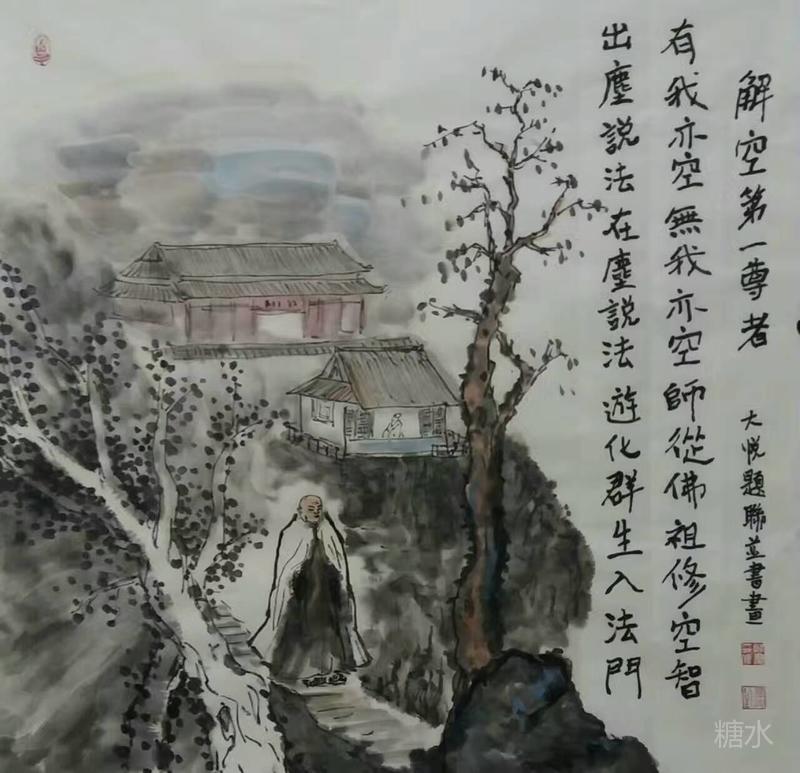 解空第一尊者
大悅題聯並書畫
有我亦空無我亦空師從佛祖修空智
出塵説法在塵説法遊化群生入法門
糖水